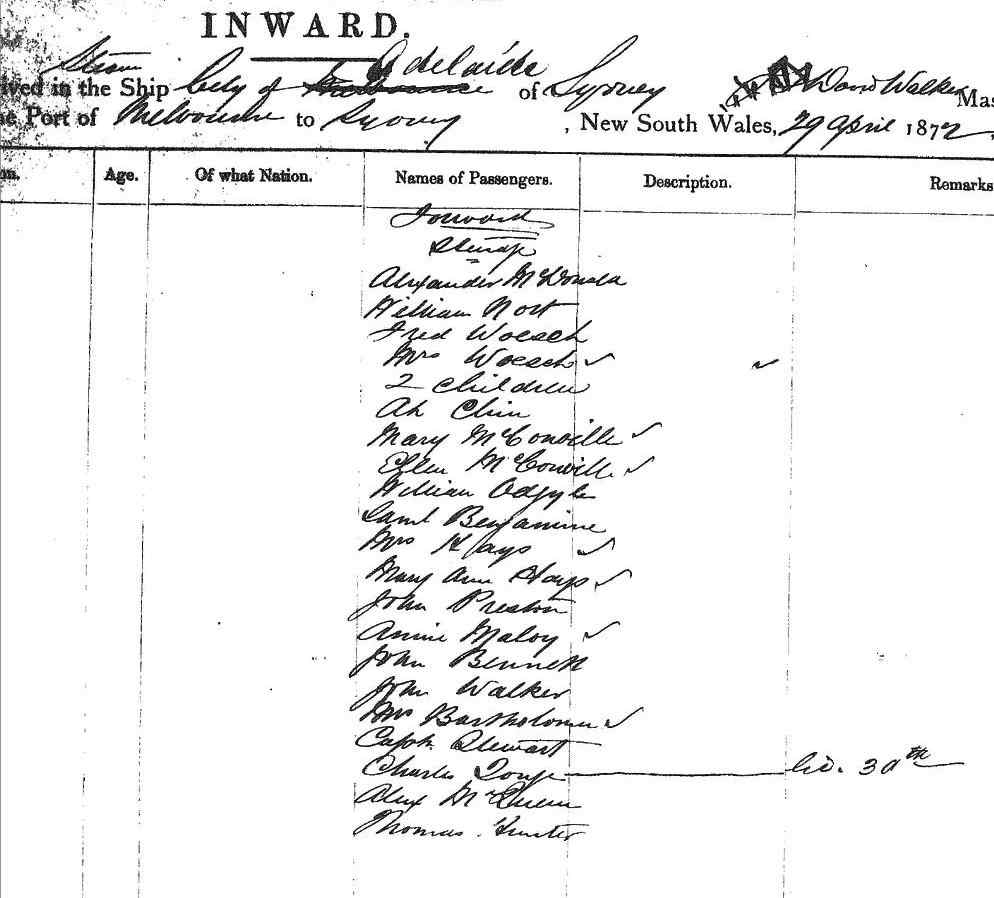 INWARD.
Steam Adelaide
ived in the Ship City of Melbourne of Sydney David Walker Mas
e Port of Melbourne to Sydney , New South Wales, 29 April 1872.
on. Age. Of what Nation. Names of Passengers. Description. Remarks
Forward
Steerage
Alexander McDonald
William Nott
Fred Woesch
Mrs Woesch ✓ ✓
2 Children
Ah Chin
Mary McConville ✓
Ellen McConville ✓
William
Saml Benjamine
Mrs Hays ✓
Mary Ann Hays ✓
John Preston
Annie Maloy ✓
John Bennett
John Walker
Mrs Bartholomew ✓
Capt. Stewart
Charles 30th
Alex McQueen
Thomas